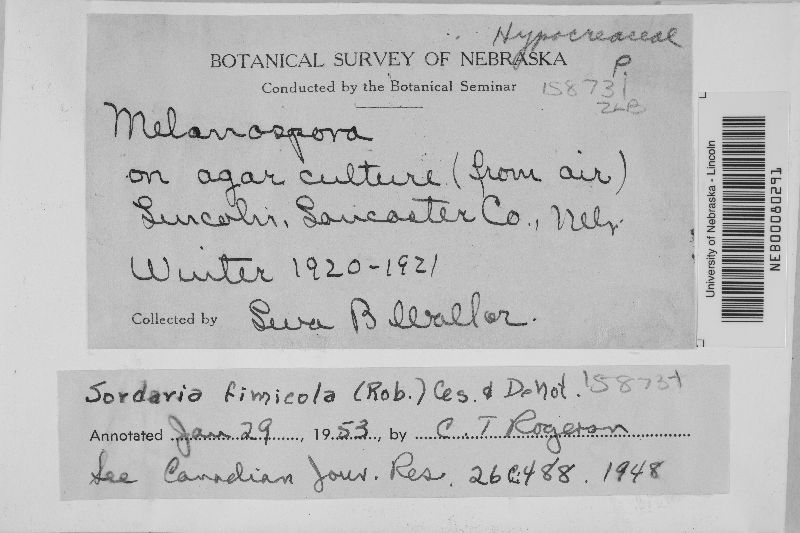 Hypocreaceae
P.
BOTANICAL SURVEY OF NEBRASKA
Conducted by the Botanical Seminar
158731
ZLB
Melanospora
on agar culture (from air)
Lincoln, Lancaster Co., Nebr.
Winter 1920-1921
Collected by Leva B Wallar.
University of Nebraska - Lincoln
NEB00080291
Sordaria fimicola (Rob.) Ces. & DeNot. 158731
Annotated Jan 29, 1953, by C. T Rogerson
See Canadian Jour. Res. 26C:488. 1948